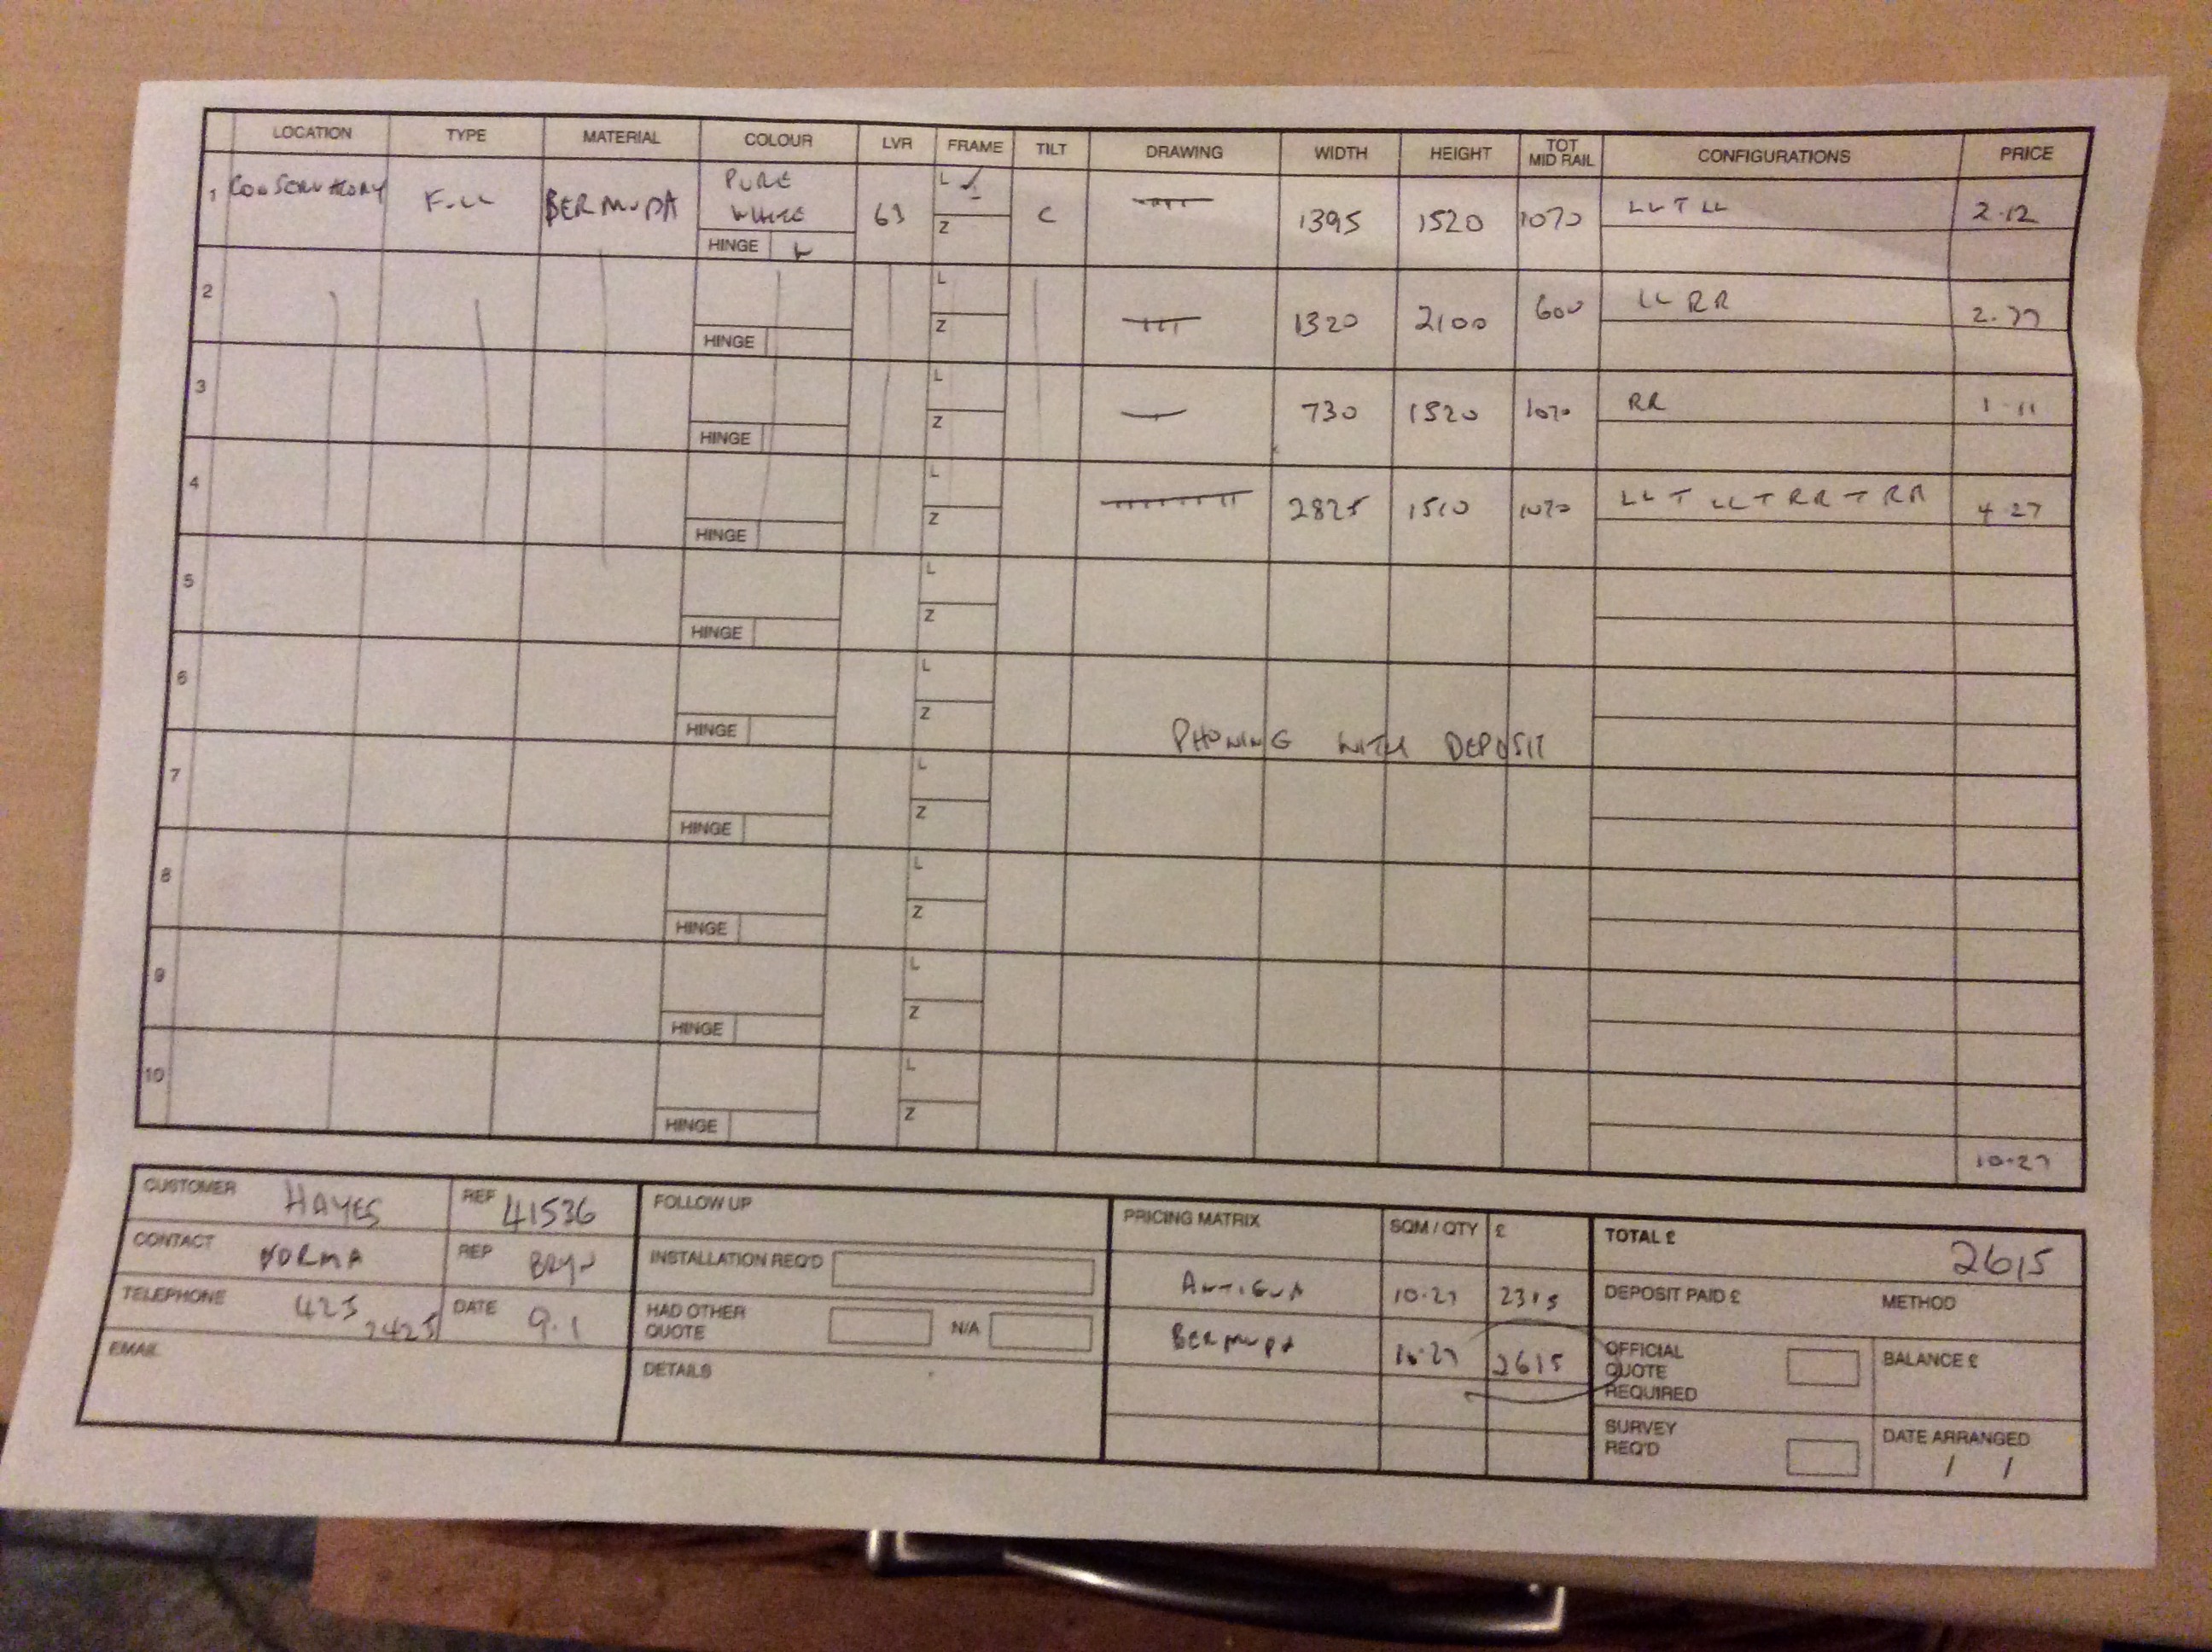 LOCATION TYPE MATERIAL COLOUR LVR FRAME TILT DRAWING WIDTH HEIGHT TOT MID RAIL CONFIGURATIONS PRICE
1 CONSERVATORY FULL BERMUDA PURE WHITE 63 L ✓ Z C 1395 1520 1070 LLTLL 2.12
HINGE W
2 L Z 1320 2100 600 LL RR 2.77
HINGE
3 L Z 730 1520 1070 RR 1.11
HINGE
4 L Z 2825 1510 1070 LLT LLT RRT RR 4.27
HINGE
5 L Z
HINGE
6 L Z
HINGE
PHONING WITH DEPOSIT
7 L Z
HINGE
8 L Z
HINGE
9 L Z
HINGE
10 L Z
HINGE
10.27
CUSTOMER HAYES REF 41536
CONTACT NORMA REP BRYN
TELEPHONE 425 2425 DATE 9.1
EMAIL
FOLLOW UP
INSTALLATION REQ'D
HAD OTHER QUOTE N/A
DETAILS
PRICING MATRIX SQM / QTY £
ANTIGUA 10.27 2315
BERMUDA 10.27 2615
TOTAL £ 2615
DEPOSIT PAID £ METHOD
OFFICIAL QUOTE REQUIRED BALANCE £
SURVEY REQ'D DATE ARRANGED
/ /